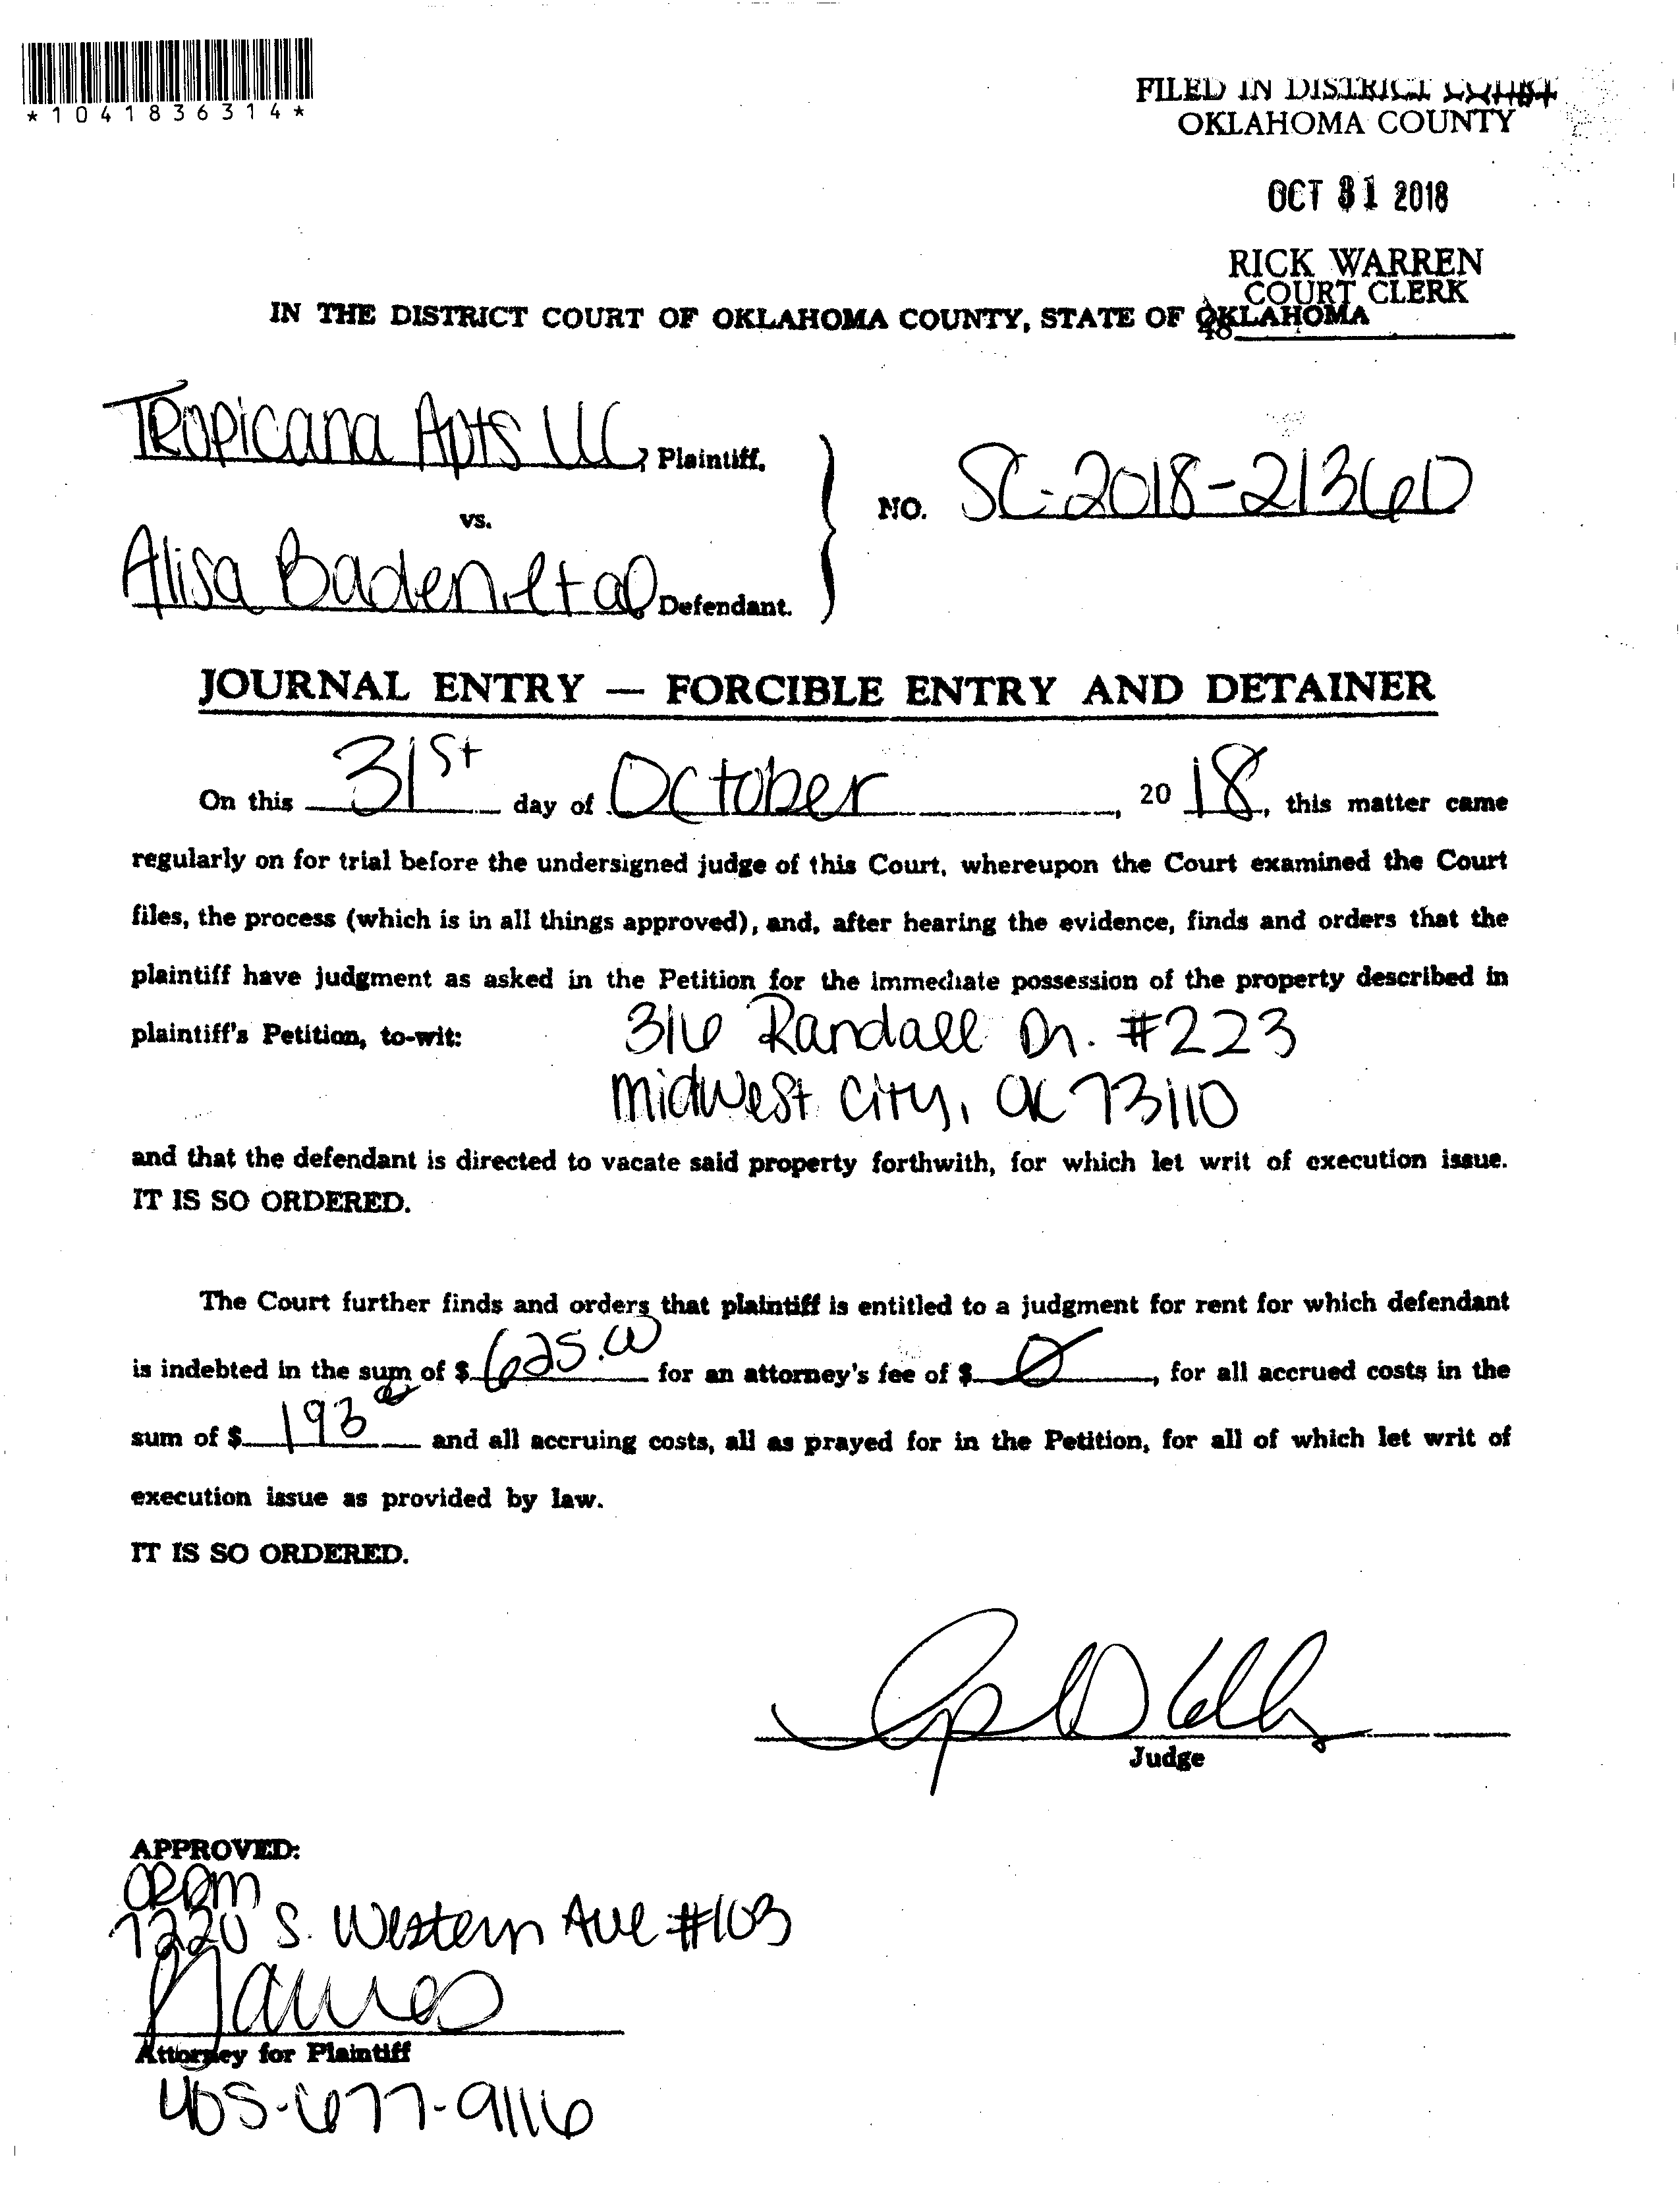 *1041836314*
FILED IN DISTRICT COURT
OKLAHOMA COUNTY
OCT 31 2018
RICK WARREN
COURT CLERK
IN THE DISTRICT COURT OF OKLAHOMA COUNTY, STATE OF OKLAHOMA
48
Tropicana Apts LLC, Plaintiff,
vs.
NO. SC-2018-21360
Alisa Baden, et al Defendant.
JOURNAL ENTRY — FORCIBLE ENTRY AND DETAINER
On this 31st day of October, 20 18, this matter came
regularly on for trial before the undersigned judge of this Court, whereupon the Court examined the Court
files, the process (which is in all things approved), and, after hearing the evidence, finds and orders that the
plaintiff have judgment as asked in the Petition for the immediate possession of the property described in
plaintiff's Petition, to-wit: 316 Randall Dr. #223
Midwest City, OK 73110
and that the defendant is directed to vacate said property forthwith, for which let writ of execution issue.
IT IS SO ORDERED.
The Court further finds and orders that plaintiff is entitled to a judgment for rent for which defendant
is indebted in the sum of $ 625.00 for an attorney's fee of $ 0, for all accrued costs in the
sum of $ 193 00 and all accruing costs, all as prayed for in the Petition, for all of which let writ of
execution issue as provided by law.
IT IS SO ORDERED.
Judge
APPROVED:
7220 S. Western Ave #103
Attorney for Plaintiff
405-677-9116